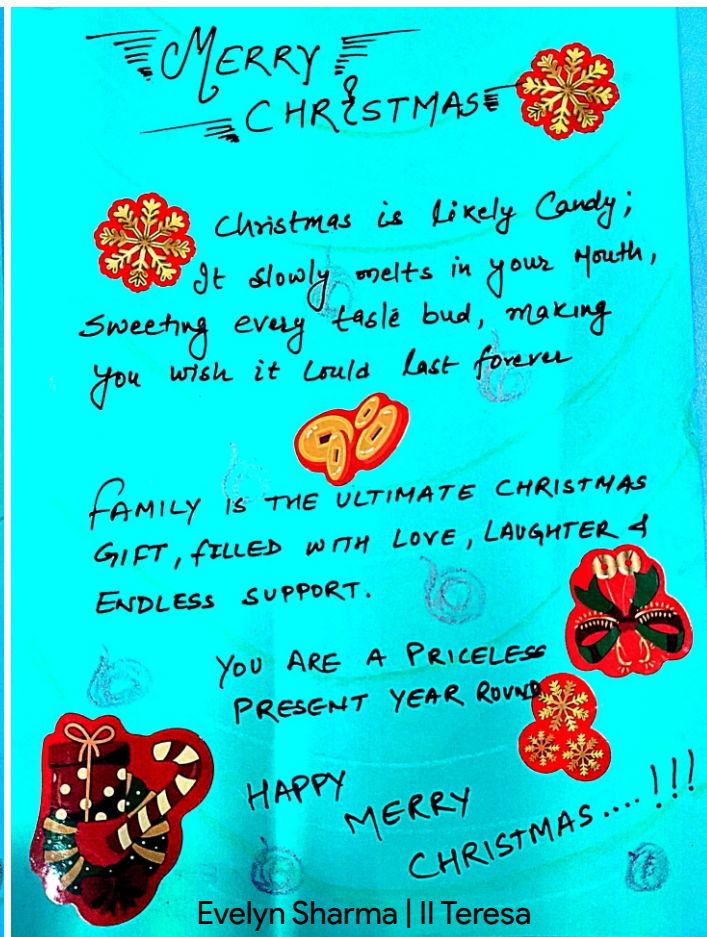 MERRY
CHRISTMAS
Christmas is likely Candy;
It slowly melts in your Mouth,
Sweeting every taste bud, making
you wish it could last forever
FAMILY IS THE ULTIMATE CHRISTMAS
GIFT, FILLED WITH LOVE, LAUGHTER &
ENDLESS SUPPORT.
YOU ARE A PRICELESS
PRESENT YEAR ROUND
HAPPY
MERRY
CHRISTMAS....!!!
Evelyn Sharma | II Teresa